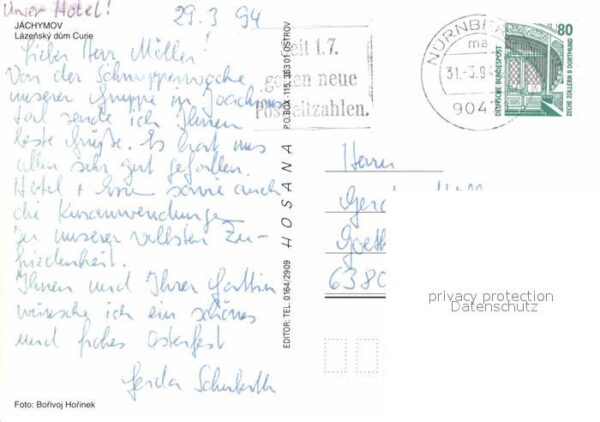 Unser Hotel!
29.3.94
JÁCHYMOV
Lázeňský dům Curie
Lieber Herr Möller!
Von der Schnupperwoche
unserer Gruppe in Joachims-
tal sende ich Ihnen
beste Grüße. Es hat uns
allen sehr gut gefallen.
Hotel + Essen sowie auch
die Kuranwendungen
zu unserer vollsten Zu-
friedenheit.
Ihnen und Ihrer Gattin
wünsche ich ein schönes
und frohes Osterfest
Gerda
Foto: Bořivoj Hořínek
EDITOR: TEL. 0164/2909 HOSANA P.O.BOX 115, 363 01 OSTROV
seit 1.7.
gelten neue
Postleitzahlen.
NÜRNBE
31.-3.94
904
80
DEUTSCHE BUNDESPOST
ZECHE ZOLLERN II DORTMUND
Herrn
Goeth
6380
privacy protection
Datenschutz